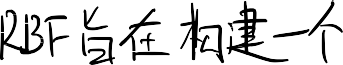 RBF旨在构建一个